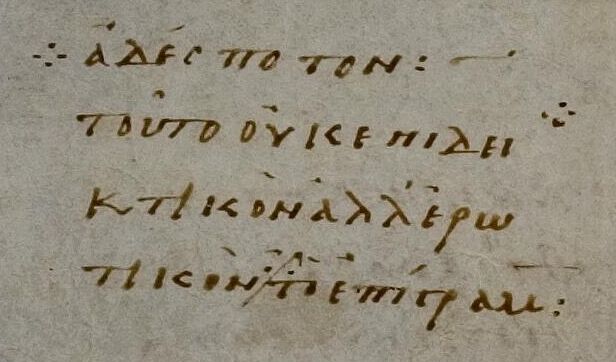 ἀδέσποτον:
τοῦτο οὐκ ἐπιδει
κτικὸν ἀλλ' ἐρω
τικὸν τὸ ἐπίγραμ: